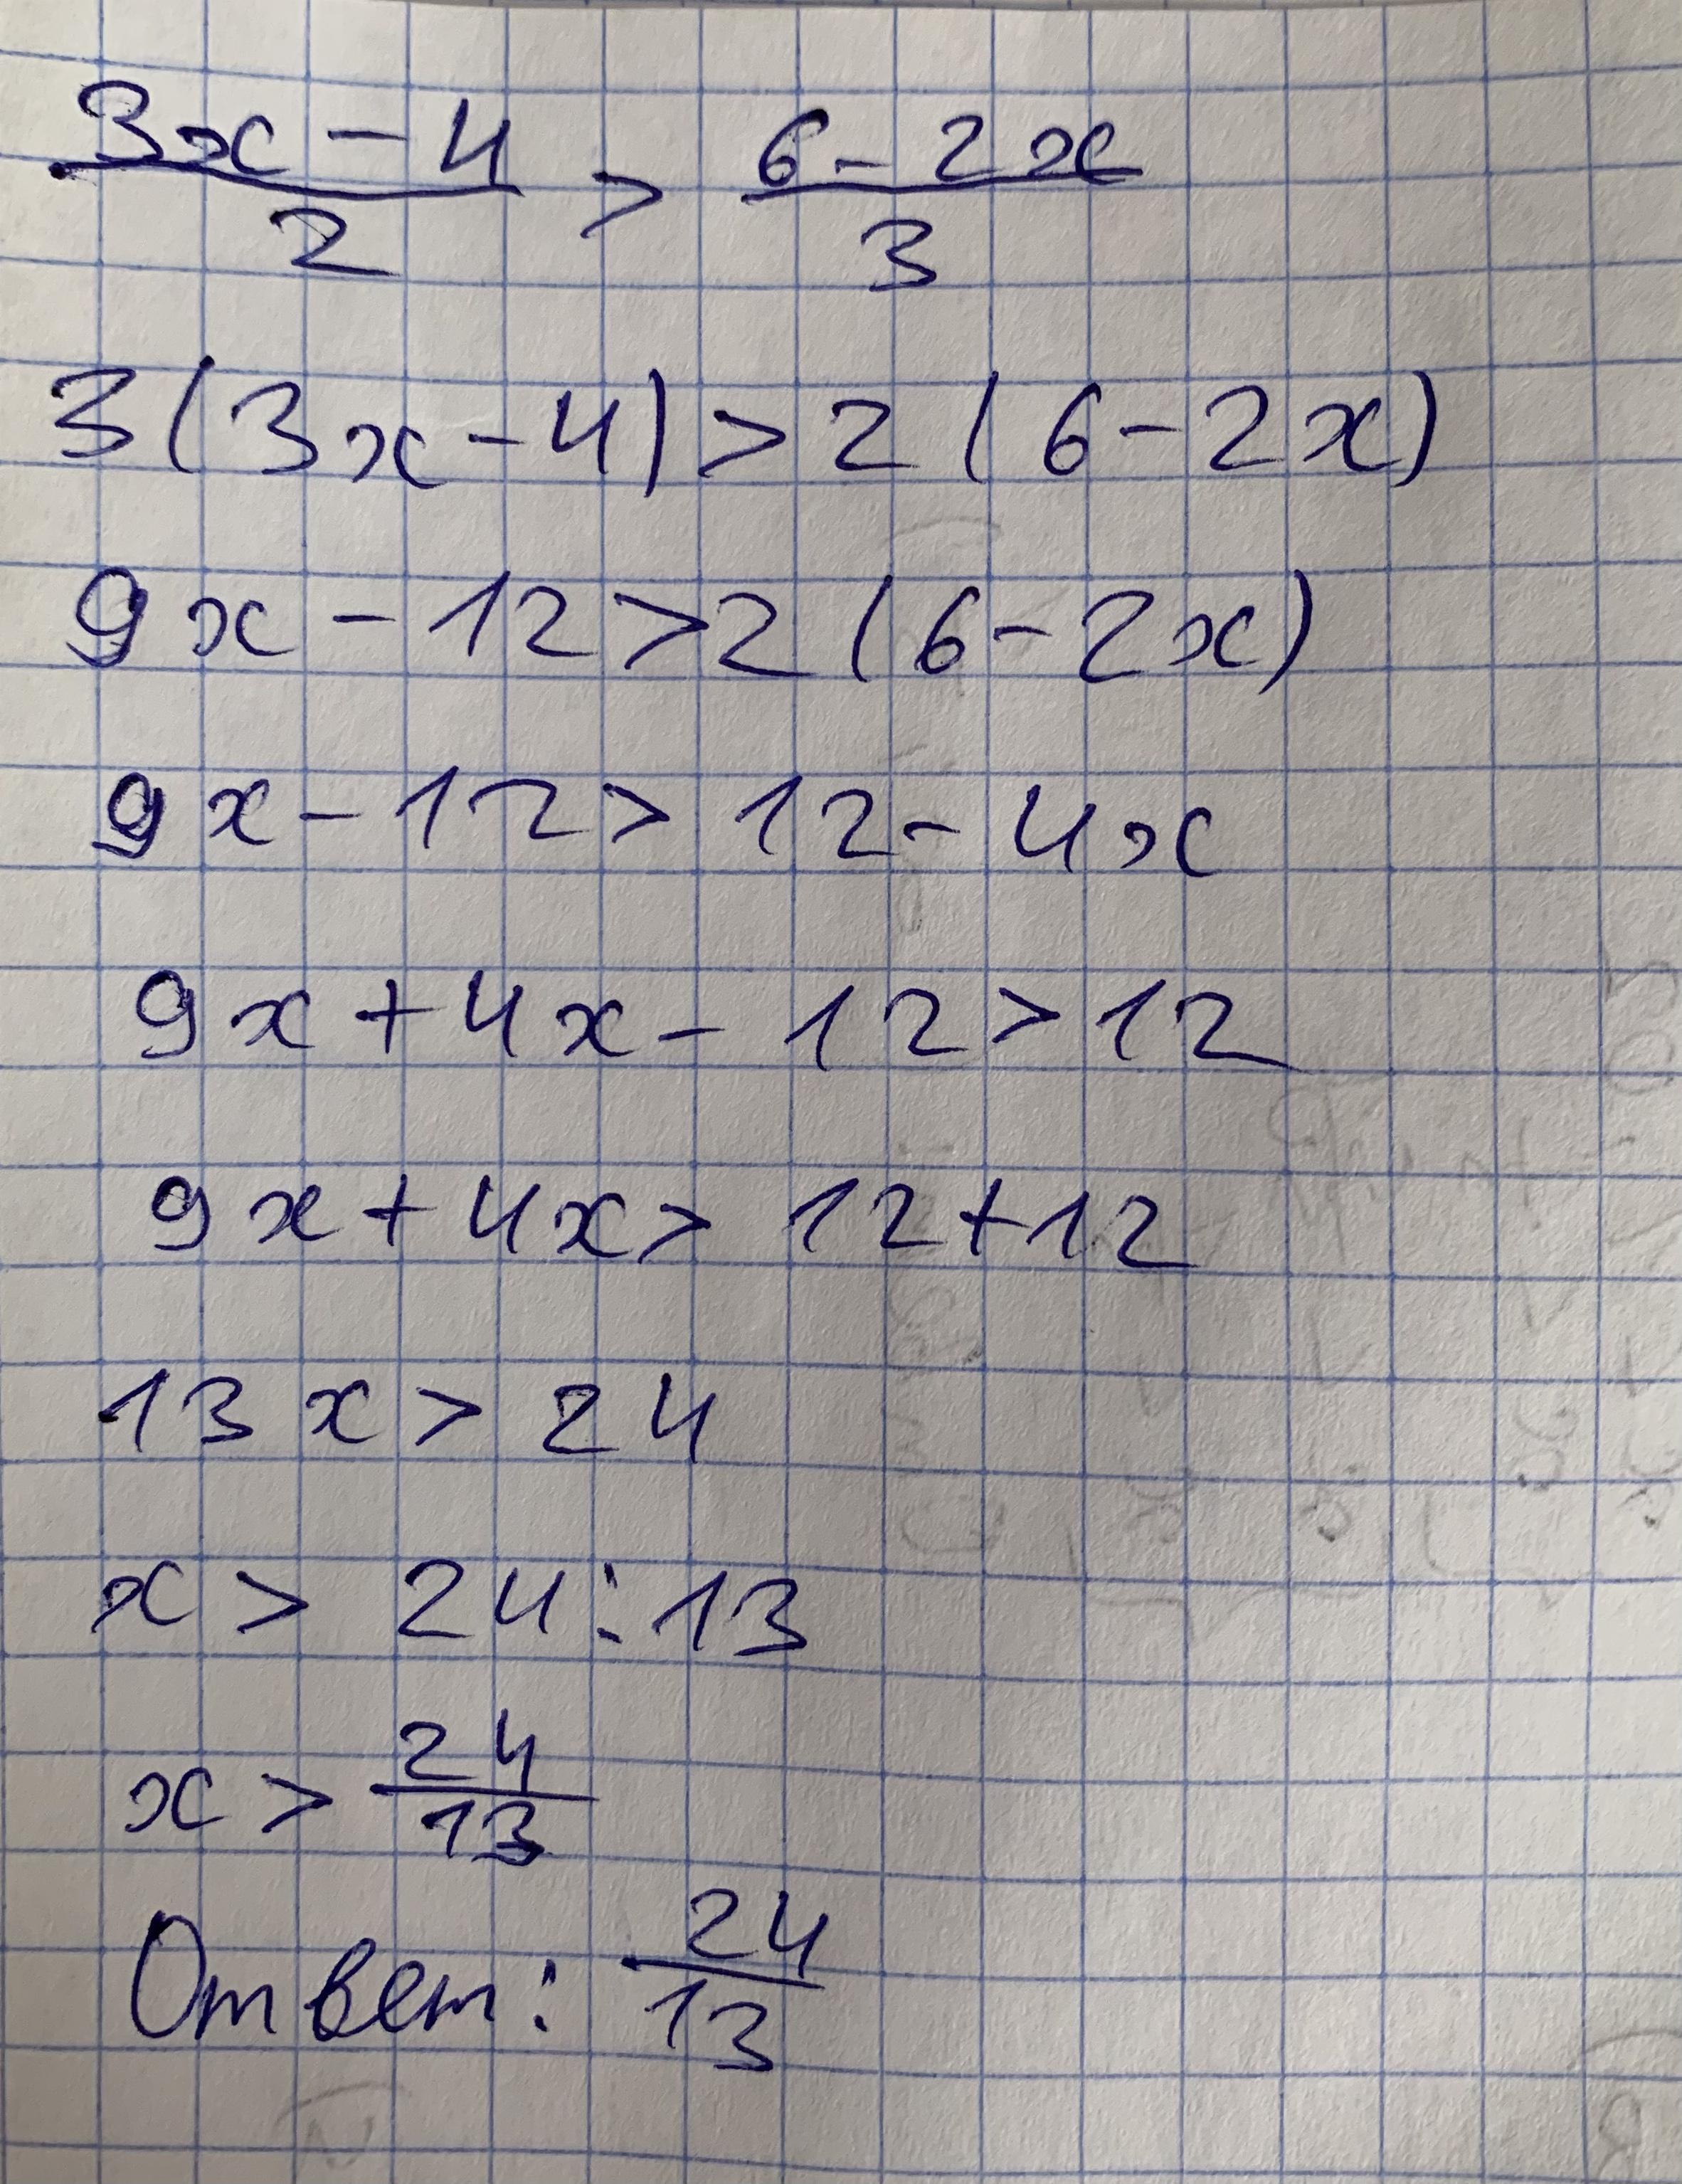 (3x - 4)/2 > (6 - 2x)/3
3(3x - 4) > 2(6 - 2x)
9x - 12 > 2(6 - 2x)
9x - 12 > 12 - 4x
9x + 4x - 12 > 12
9x + 4x > 12 + 12
13x > 24
x > 24 : 13
x > 24/13
Ответ: 24/13